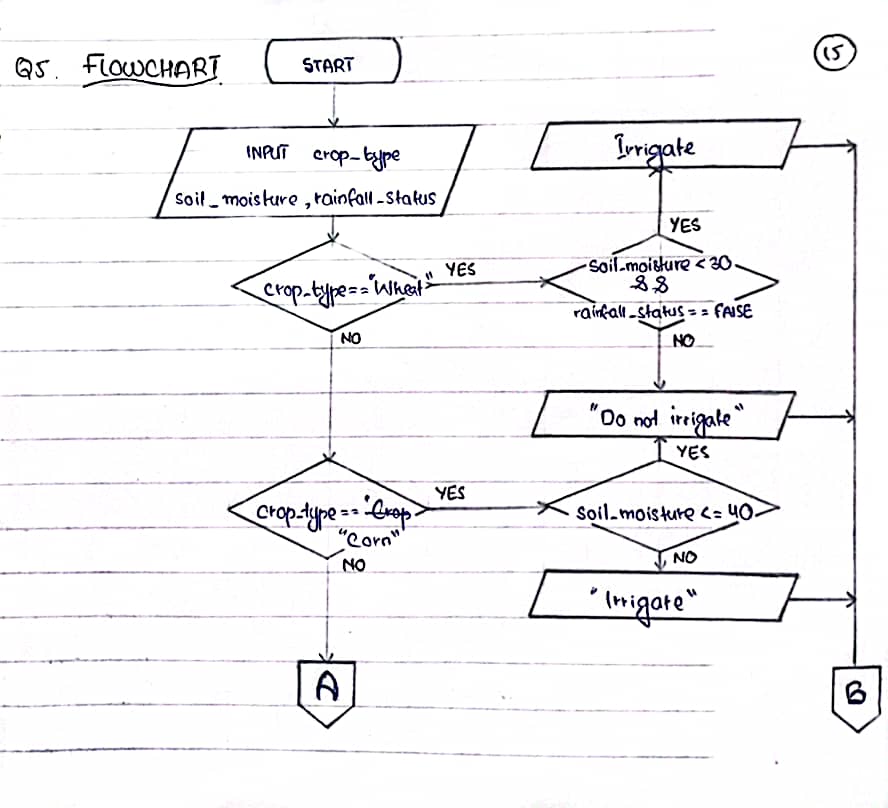 Q5. FLOWCHART
15
START
INPUT crop_type
soil_moisture, rainfall_status
Irrigate
YES
crop_type=="Wheat"
YES
soil_moisture < 30
&&
rainfall_status == FALSE
NO
NO
"Do not irrigate"
YES
crop_type == "Crop
"Corn"
YES
soil_moisture <= 40
NO
NO
"Irrigate"
A
B